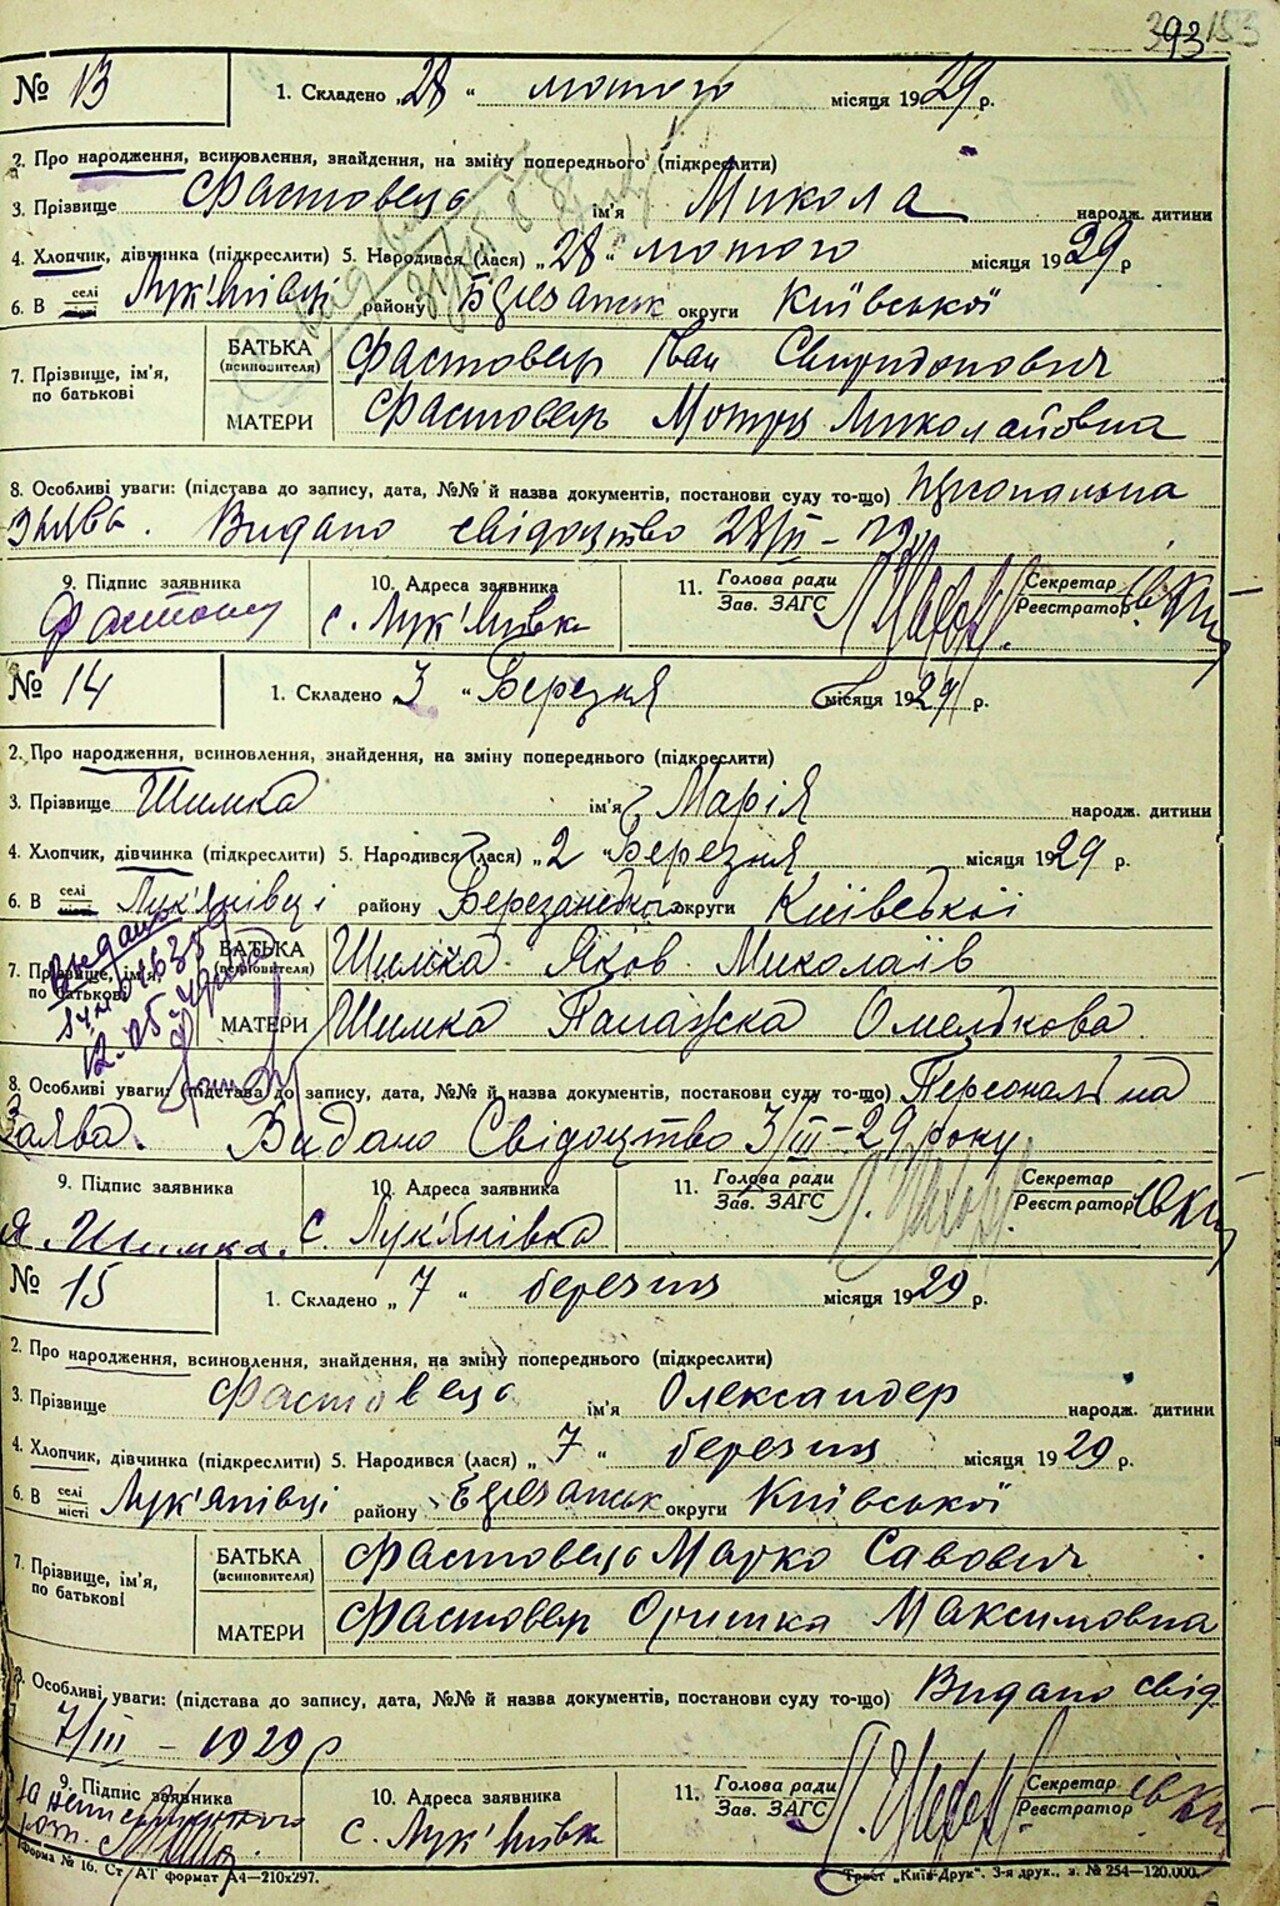 393 153
№ 13
1. Складено „28 “ лютого місяця 1929 р.
2. Про народження, всиновлення, знайдення, на зміну попереднього (підкреслити)
3. Прізвище Фастовець ім'я Микола народж. дитини
4. Хлопчик, дівчинка (підкреслити) 5. Народився (лася) „28 “ лютого місяця 1929 р
6. В селі місті Лук'янівці району Березанськ округи Київської
7. Прізвище, ім'я, по батькові
БАТЬКА (всиновителя) Фастовець Іван Свиридонович
МАТЕРИ Фастовець Мотря Миколаївна
8. Особливі уваги: (підстава до запису, дата, №№ й назва документів, постанови суду то-що) персональна
заява. Видано свідоцтво 28/II - 29
9. Підпис заявника 10. Адреса заявника 11. Голова ради Зав. ЗАГС Секретар Реєстратор
Фастовец с. Лук'янівка
№ 14
1. Складено 3 “ Березня місяця 1929 р.
2. Про народження, всиновлення, знайдення, на зміну попереднього (підкреслити)
3. Прізвище Шимка ім'я Марія народж. дитини
4. Хлопчик, дівчинка (підкреслити) 5. Народився (лася) „2 “ Березня місяця 1929 р.
6. В селі місті Лук'янівці району Березанської округи Київської
7. Прізвище, ім'я, по батькові
БАТЬКА (всиновителя) Шимка Яков Миколаїв
МАТЕРИ Шимка Палажка Омелькова
8. Особливі уваги: (підстава до запису, дата, №№ й назва документів, постанови суду то-що) Персональна
Заява. Видано Свідоцтво 3/III-29 року
9. Підпис заявника 10. Адреса заявника 11. Голова ради Зав. ЗАГС Секретар Реєстратор
Я. Шимка. с. Лук'янівка
№ 15
1. Складено „ 7 “ березня місяця 1929 р.
2. Про народження, всиновлення, знайдення, на зміну попереднього (підкреслити)
3. Прізвище Фастовець ім'я Олександер народж. дитини
4. Хлопчик, дівчинка (підкреслити) 5. Народився (лася) „ 7 “ березня місяця 1929 р.
6. В селі місті Лук'янівці району Березанськ округи Київської
7. Прізвище, ім'я, по батькові
БАТЬКА (всиновителя) Фастовець Марко Савович
МАТЕРИ Фастовець Оришка Максимовна
8. Особливі уваги: (підстава до запису, дата, №№ й назва документів, постанови суду то-що) Видано свід
7/III - 1929 р
9. Підпис заявника 10. Адреса заявника 11. Голова ради Зав. ЗАГС Секретар Реєстратор
с. Лук'янівка
Форма № 16. Ст. АТ формат А4—210х297. Трест „Київ-Друк“. 3-я друк., з. № 254—120.000.